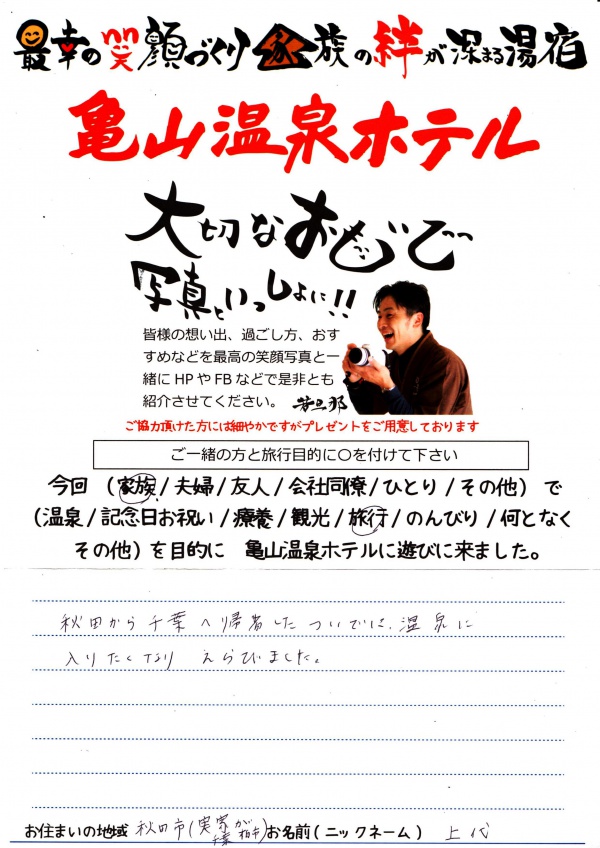 最幸の笑顔づくり 家族の絆が深まる湯宿
亀山温泉ホテル
大切なおもいで
写真といっしょに!!
皆様の想い出、過ごし方、おす
すめなどを最高の笑顔写真と一
緒に HP や FB などで是非とも
紹介させてください。 若旦那
ご協力頂けた方には細やかですがプレゼントをご用意しております
ご一緒の方と旅行目的に○を付けて下さい
今回 (家族/夫婦/友人/会社同僚/ひとり/その他) で
(温泉/記念日お祝い/療養/観光/旅行/のんびり/何となく
その他) を目的に 亀山温泉ホテルに遊びに来ました。
秋田から千葉へ帰省したついでに、温泉に
入りたくなり えらびました。
お住まいの地域 秋田市(実家が千葉 ) お名前(ニックネーム) 上代